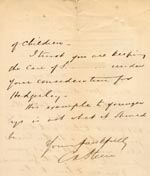 of Children.
I trust you are keeping
the Case of under
your consideration for
Hedgerley.
His example to younger
boys is not what it should
be
Yours faithfully